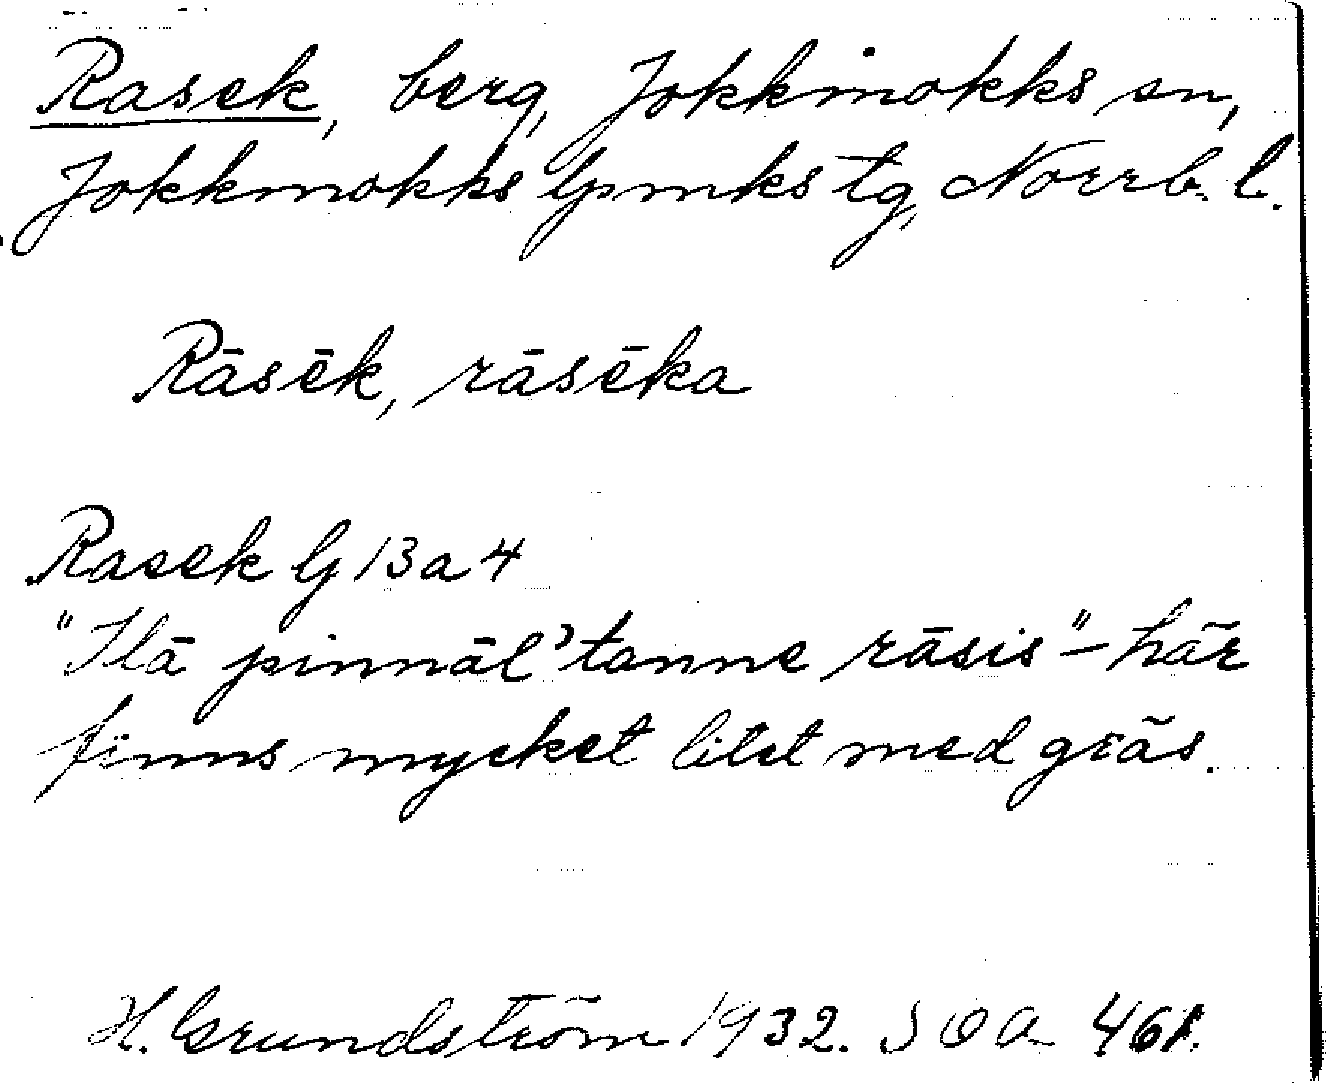 Rasek, berg, Jokkmokks sn,
Jokkmokks lpmks tg, Norrb. l.
Rāsēk, rāsēka
Rasek G 13 a 4
"Ilā pinnāl' tanne rāsis" – här
finns mycket litet med gräs.
H. Grundström 1932. SOA 461.